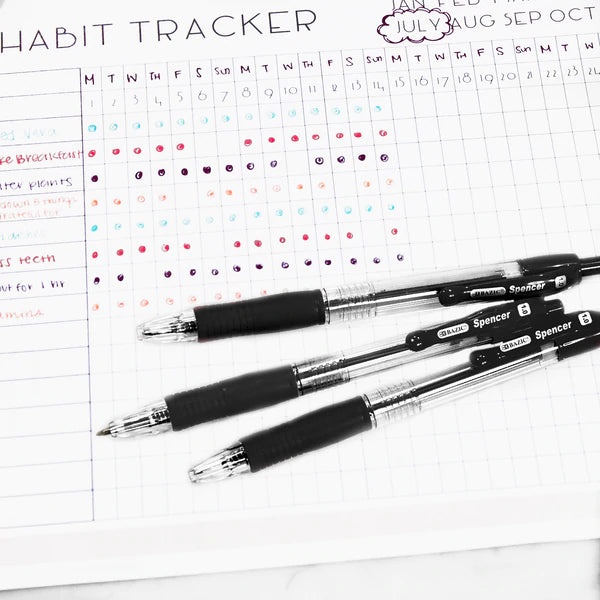 HABIT TRACKER
JAN FEB
JULY AUG SEP OCT
M T W TH F S SUN M T W TH F S SUN M T W TH F S SUN M T W
1 2 3 4 5 6 7 8 9 10 11 12 13 14 15 16 17 18 19 20 21 22 23
Breakfast
plants
down 5 things
grateful for
dishes
teeth
out for 1 hr
BAZIC Spencer 1.0
BAZIC Spencer 1.0
BAZIC Spencer 1.0